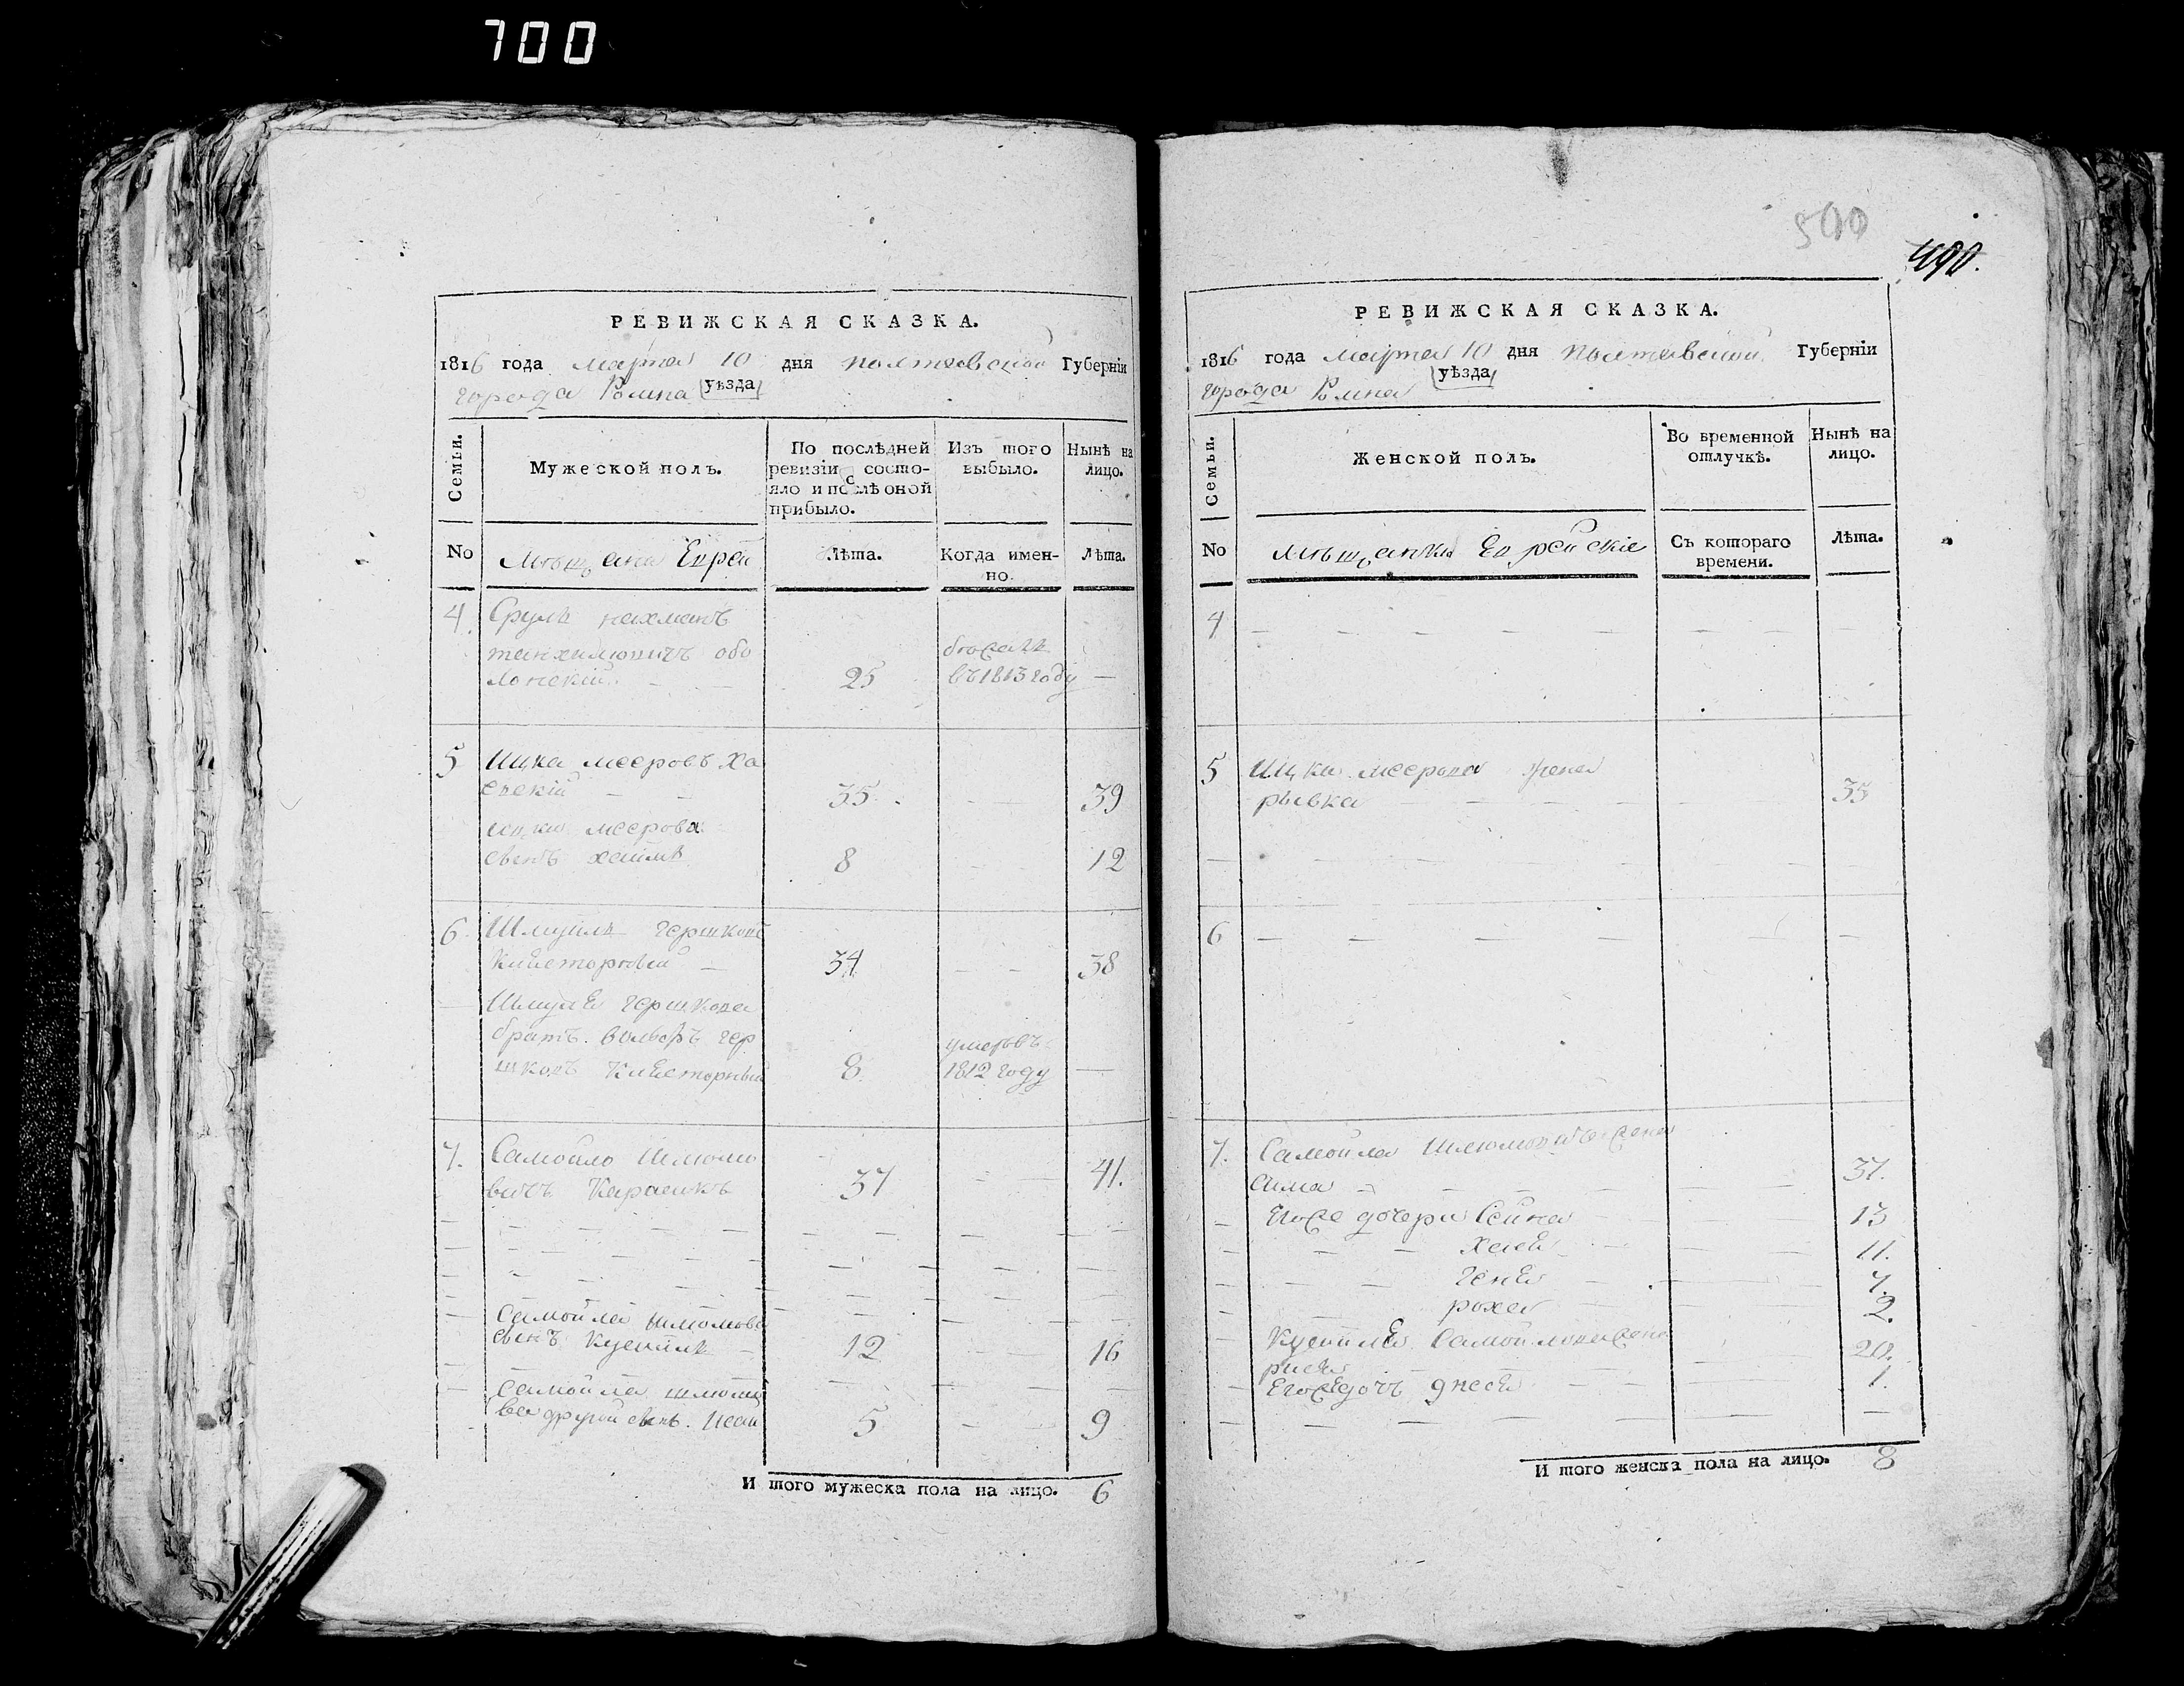 700
РЕВИЖСКАЯ СКАЗКА.
1816 года марта 10 дня Полтавской Губерніи
города Ромна уѣзда
Семьи.
Мужеской полъ.
По послѣдней ревизіи состояло и послѣ оной прибыло.
Изъ того выбыло.
Нынѣ на лицо.
No
Мѣщане Евреи
Лѣта.
Когда именно.
Лѣта.
4 Сруль нахманъ
танхилювичъ обо
лонскій 25 бѣжалъ въ 1813 году —
5 Ицка мееровъ Ха
евскій 35 39
ицки меерова
сынъ хаимъ 8 12
6 Шмуиль гершковъ
Клѣеторный 34 38
Шмуля гершкова
братъ вольфъ гер
шковъ Клѣеторный 8 умеръ въ 1812 году —
7. Самойло Шлюмо
вичъ Карасикъ 37 41.
Самойла шлюмова
сынъ Кусіиль 12 16
Самойла шлюмо
ва другой сынъ 5 9
И того мужеска пола на лицо. 6
500
490.
РЕВИЖСКАЯ СКАЗКА.
1816 года марта 10 дня Полтавской Губерніи
города Ромна уѣзда
Семьи.
Женской полъ.
Во временной отлучкѣ.
Нынѣ на лицо.
No
Мѣщанки Еврейскіе
Съ котораго времени.
Лѣта.
4
5 Ицки меерова жена
рывка 35
6
7. Самойла Шлюмовича жена
сима 37.
Егоже дочери Сейна 13
хая 11.
геня 7.
роха 2.
Кусіиля Самойлова жена
20.
Егоже дочь днеся 1.
И того женска пола на лицо. 8